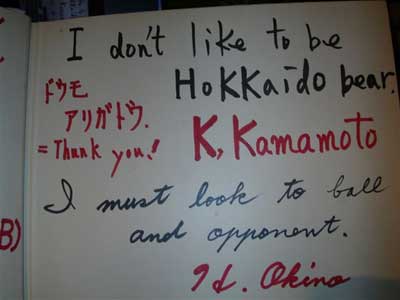 I don't like to be
Hokkaido bear.
ドウモ
アリガトウ.
= Thank you!
K, Kamamoto
I must look to ball
and opponent.
H. Okino
B)